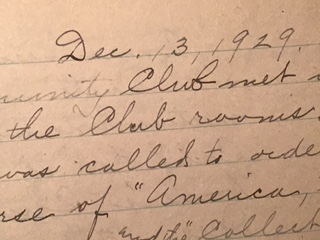 Dec. 13, 1929.
munity Club met
the Club rooms.
was called to orde
rse of "America,
and the "Collect